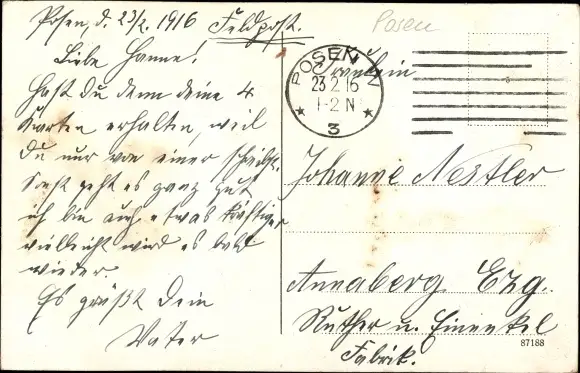 Posen, d. 23/2. 1916 Feldpost.
Posen
Liebe Hanne!
Hast du denn deine 4
Karten erhalten, weil
du nur von einer schreibst.
Sonst geht es ganz gut
ich bin auch etwas kräftiger
vielleicht wird es bald
wieder.
Es grüßt Dein
Vater
POSEN
23.2.16
1-2 N
3
Fräulein
Johanne Nestler
Annaberg Erzg.
u.
Fabrik.
87188